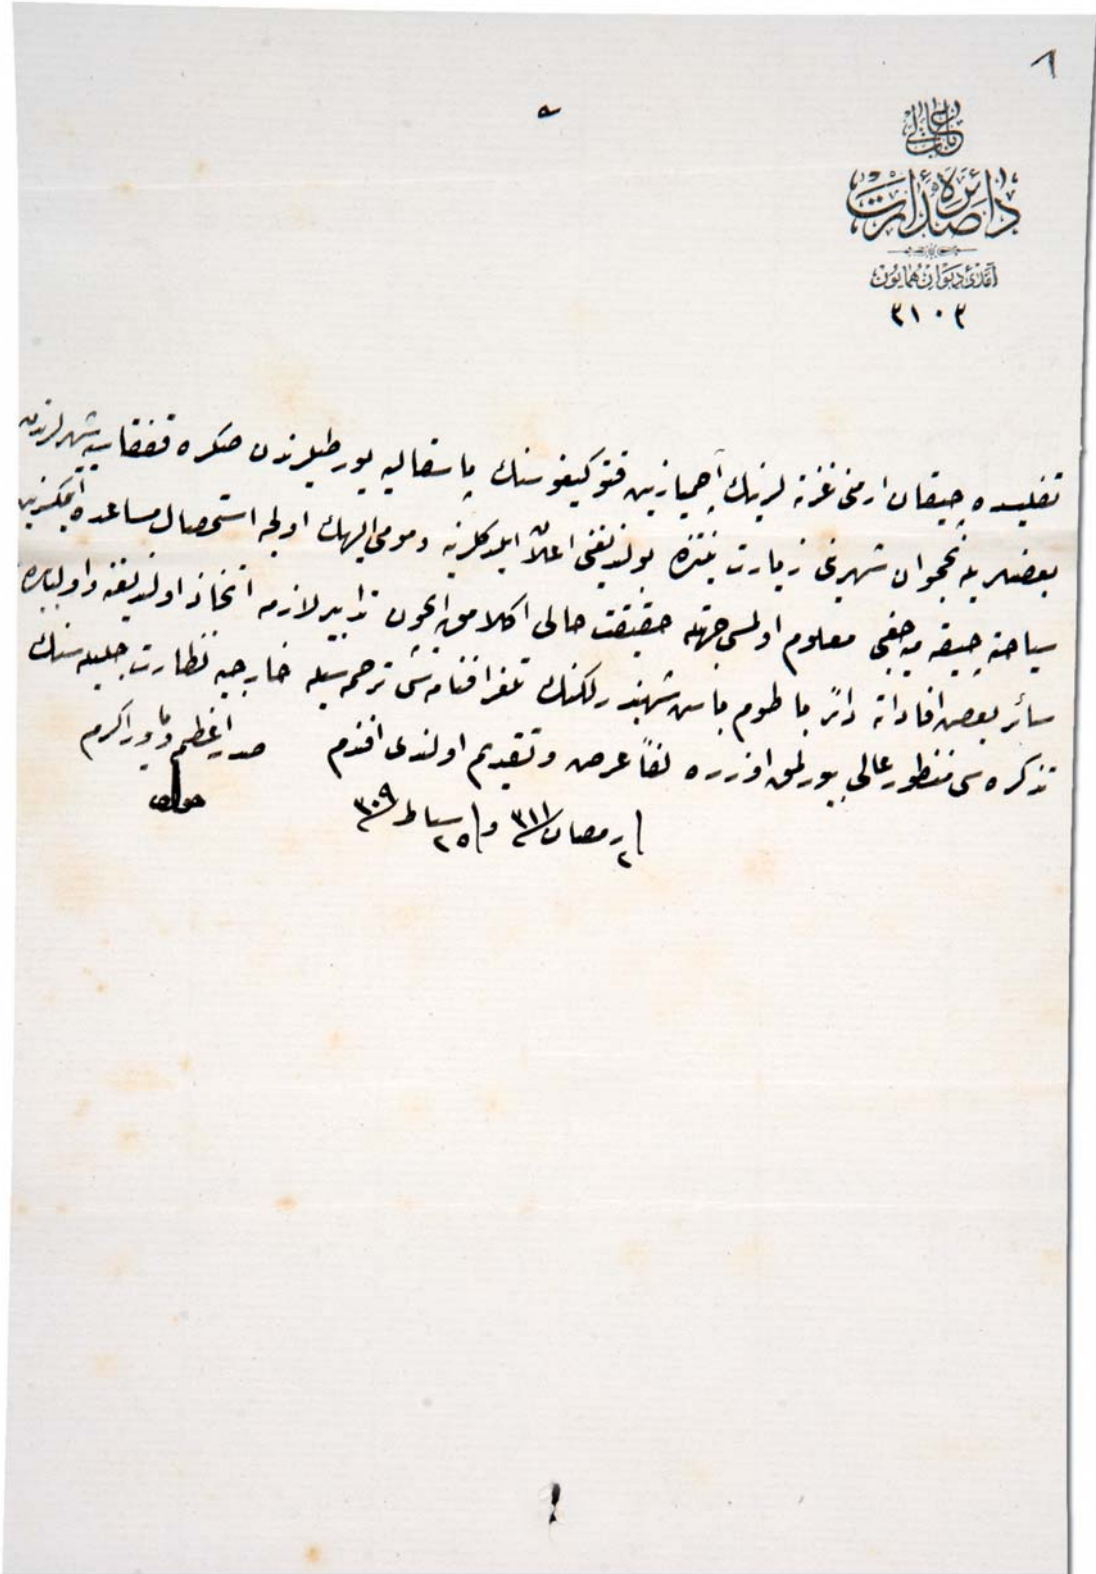 ٨
باب عالی
دائرۀ صدارت
آمدئ دیوان همایون
٣١٠٣
تفلیسده چیقان ارمنی غزته لرینك اچمیازین قتوغیقوسنك پاسقالیه یورطیلرندن صكره قفقاسیه شهرلرندن
بعضیلریله نخجوان شهرینی زیارت نیتنده بولندیغنی اعلان ایلدكلرینه ومومی الیهك اولجه استحصال مساعده ایتمكزین
سیاحته چیقه میه جغی معلوم اولمسی جهتله حقیقت حالی اكلامق ایچون تدابیر لازمه اتخاذ اولندیغنه واولبابده
سائر بعض افاداته دائر باطوم باش شهبندرلكنك تلغرافنامه سی ترجمه سیله خارجیه نظارت جلیله سنك
تذكره سی منظور عالی بیورلمق اوزره لفاً عرض وتقدیم اولندی افندم
٢ رمضان ٣١١ و ٢٥ شباط ٣٠٩
صدر اعظم ویاور اكرم
جواد